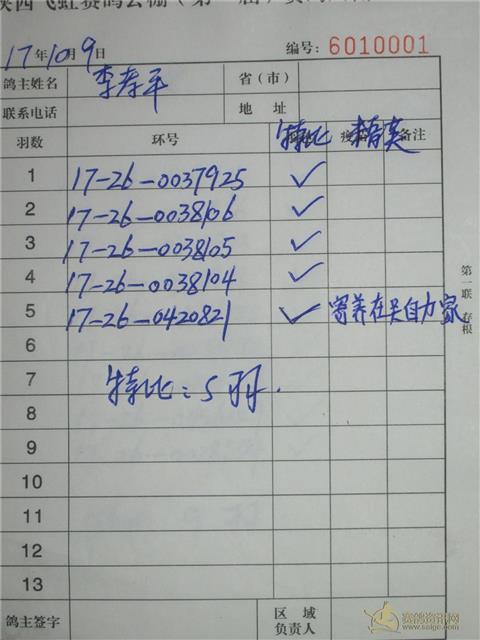 陕西飞虹赛鸽公棚(第一届)
17年10月9日 编号:6010001
鸽主姓名 李孝平 省(市)
联系电话 地址
羽数 环号 特比 精英 备注
1 17-26-0037925 ✓
2 17-26-0038106 ✓
3 17-26-0038105 ✓
4 17-26-0038104 ✓
5 17-26-0420821 ✓ 寄养在吴自力家
6
7 特比:5羽.
8
9
10
11
12
13
鸽主签字 区域负责人
第一联 存根
赛鸽资讯网
www.saige.com